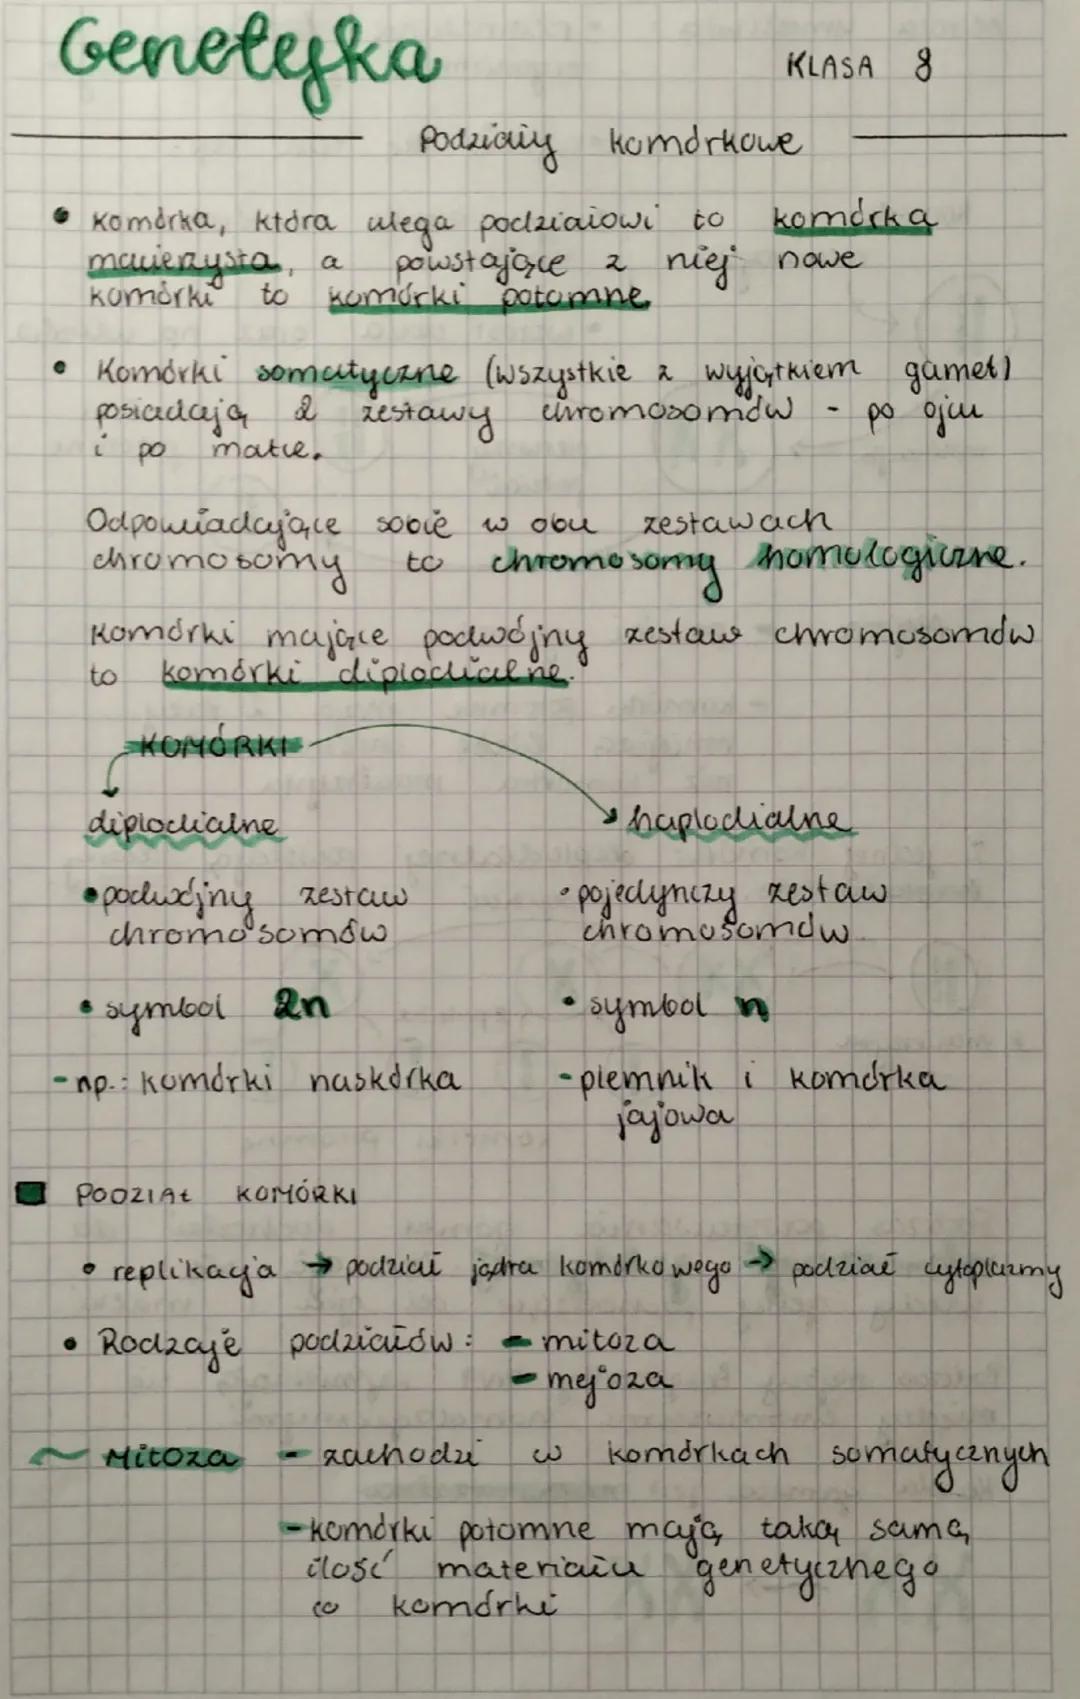 Genetyka
KLASA 8
Podziały komórkowe
• Komórka, która ulega podziałowi to komórka
macierzysta, a powstające z niej nowe
komórki to komórki potomne.
• Komórki somatyczne (wszystkie z wyjątkiem gamet)
posiadają 2 zestawy chromosomów - po ojcu
i po matce.
Odpowiadające sobie w obu zestawach
chromosomy to chromosomy homologiczne.
Komórki mające podwójny zestaw chromosomów
to komórki diplodialne.
KOMÓRKI
diplodialne
haplodialne
• podwójny zestaw
chromosomów
• pojedynczy zestaw
chromosomów
• symbol 2n
• symbol n
- np.: komórki naskórka
- plemnik i komórka
jajowa
PODZIAŁ KOMÓRKI
• replikacja → podział jądra komórkowego → podział cytoplazmy
• Rodzaje podziałów: - mitoza
- mejoza
~ Mitoza - zachodzi w komórkach somatycznych
- komórki potomne mają taką samą
ilość materiału genetycznego
co komórki